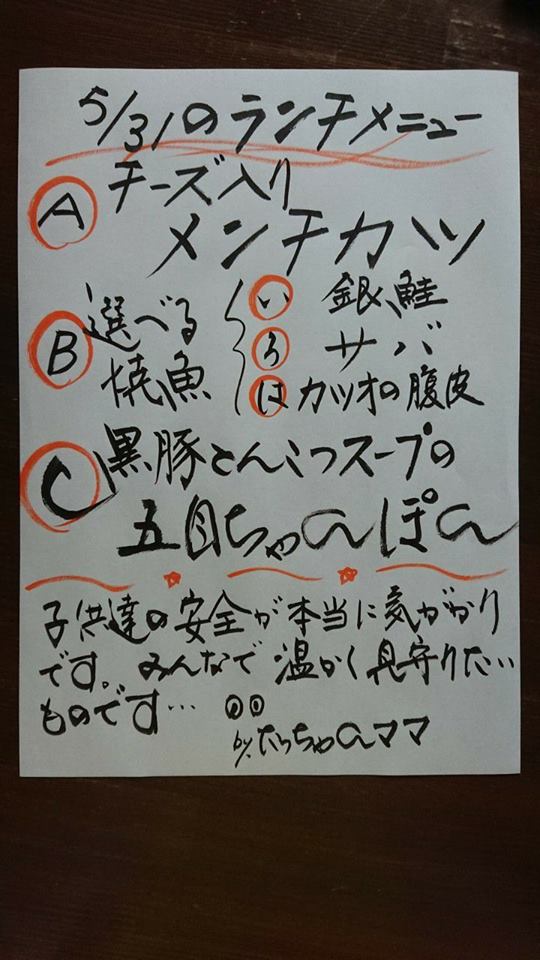 5/31のランチメニュー
A チーズ入り
メンチカツ
B 選べる
焼魚
い 銀鮭
ろ サバ
は カツオの腹皮
C 黒豚とんこつスープの
五目ちゃんぽん
子供達の安全が本当に気がかり
です。みんなで温かく見守りたい
ものです…
by.たっちゃんママ